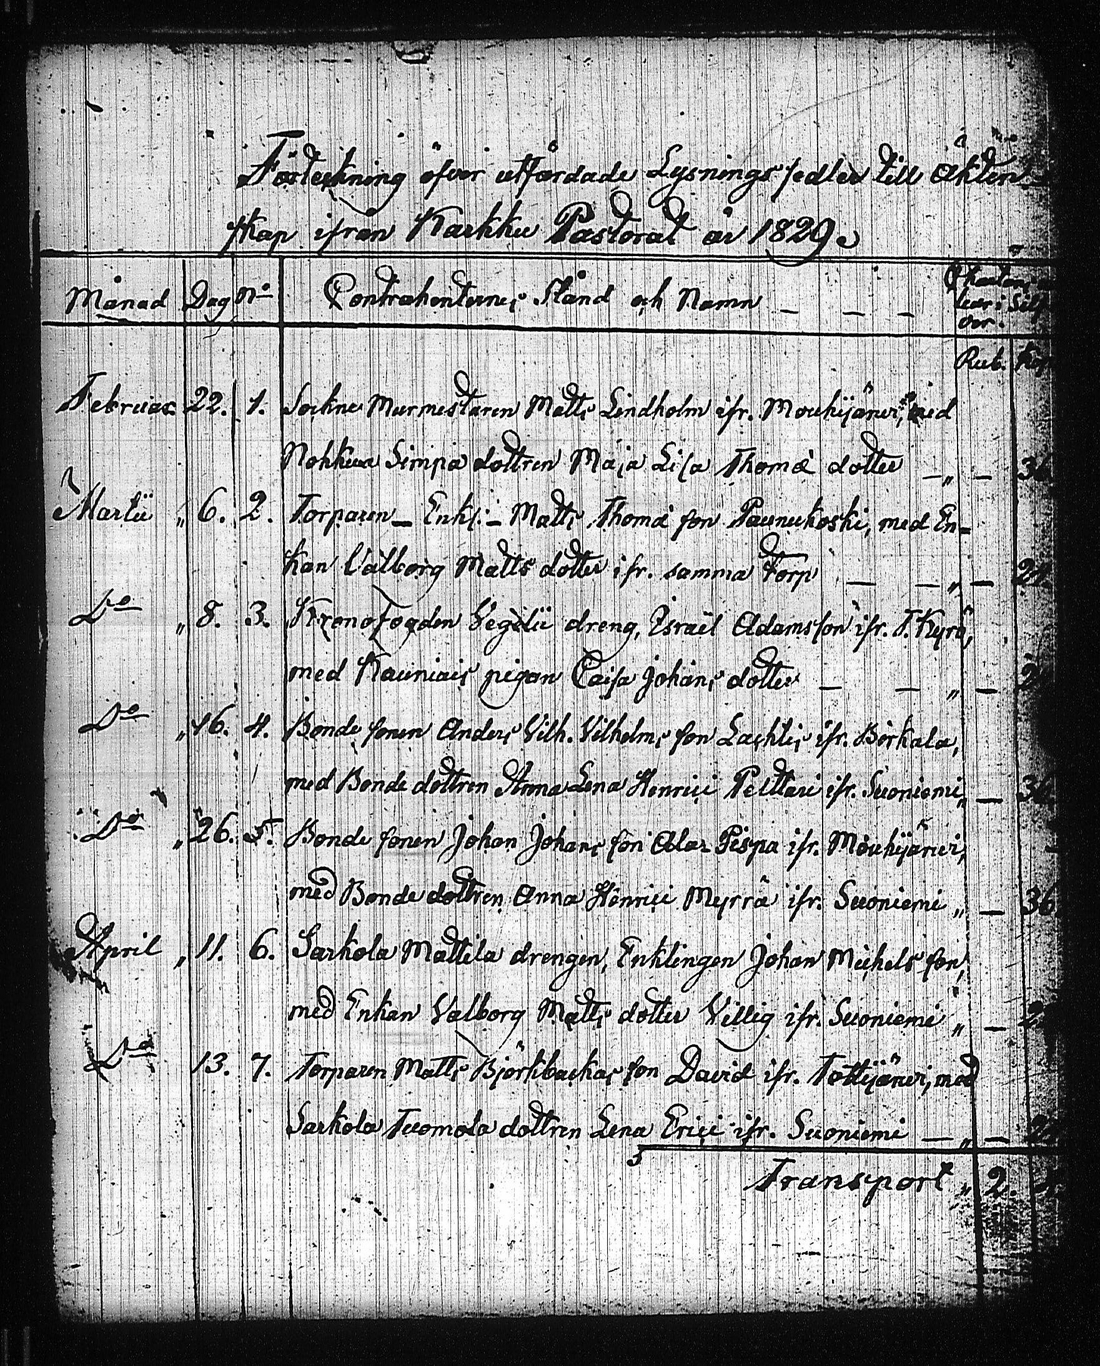 Förteckning öfver utfärdade Lysnings sedlar till äkten
skap ifrån Karkku Pastorat år 1829.
Månad Dag No Contrahenternes Stånd och Namn
Rub. Kop
Februar. 22. 1. Sockne Murmestaren Matts Lindholm ifr. Mouhijärvi, med
Nohkua Simpa dottren Maja Lisa Thomæ dotter 36
Martii 6. 2. Torparen Enkl. Matts Thomæ son Paunukoski, med En-
kan Valborg Matts dotter ifr. samma Torp
Do 8. 3. Kronofogden Vegelii dreng, Israël Adamsson ifr. T. Kyrö,
med Kauniais pigan Caisa Johans dotter
Do 16. 4. Bonde sonen Anders Vilh. Vilhelms son Lachtis ifr. Birkala,
med Bonde dottren Anna Lena Henrici Pelttari ifr. Suoniemi 36
Do 26. 5. Bonde sonen Johan Johans son Pispa ifr. Mouhijärvi,
med Bonde dottren Anna Henrici Myrrä ifr. Suoniemi 36
April 11. 6. Sarkola Mattila drengen, Enklingen Johan Michels son,
med Enkan Valborg Matts dotter Villig ifr. Suoniemi
Do 13. 7. Torparen Matts Björkbackas son David ifr. Tottijärvi, med
Sarkola Tuomola dottren Lena Erici ifr. Suoniemi
Transport 2.